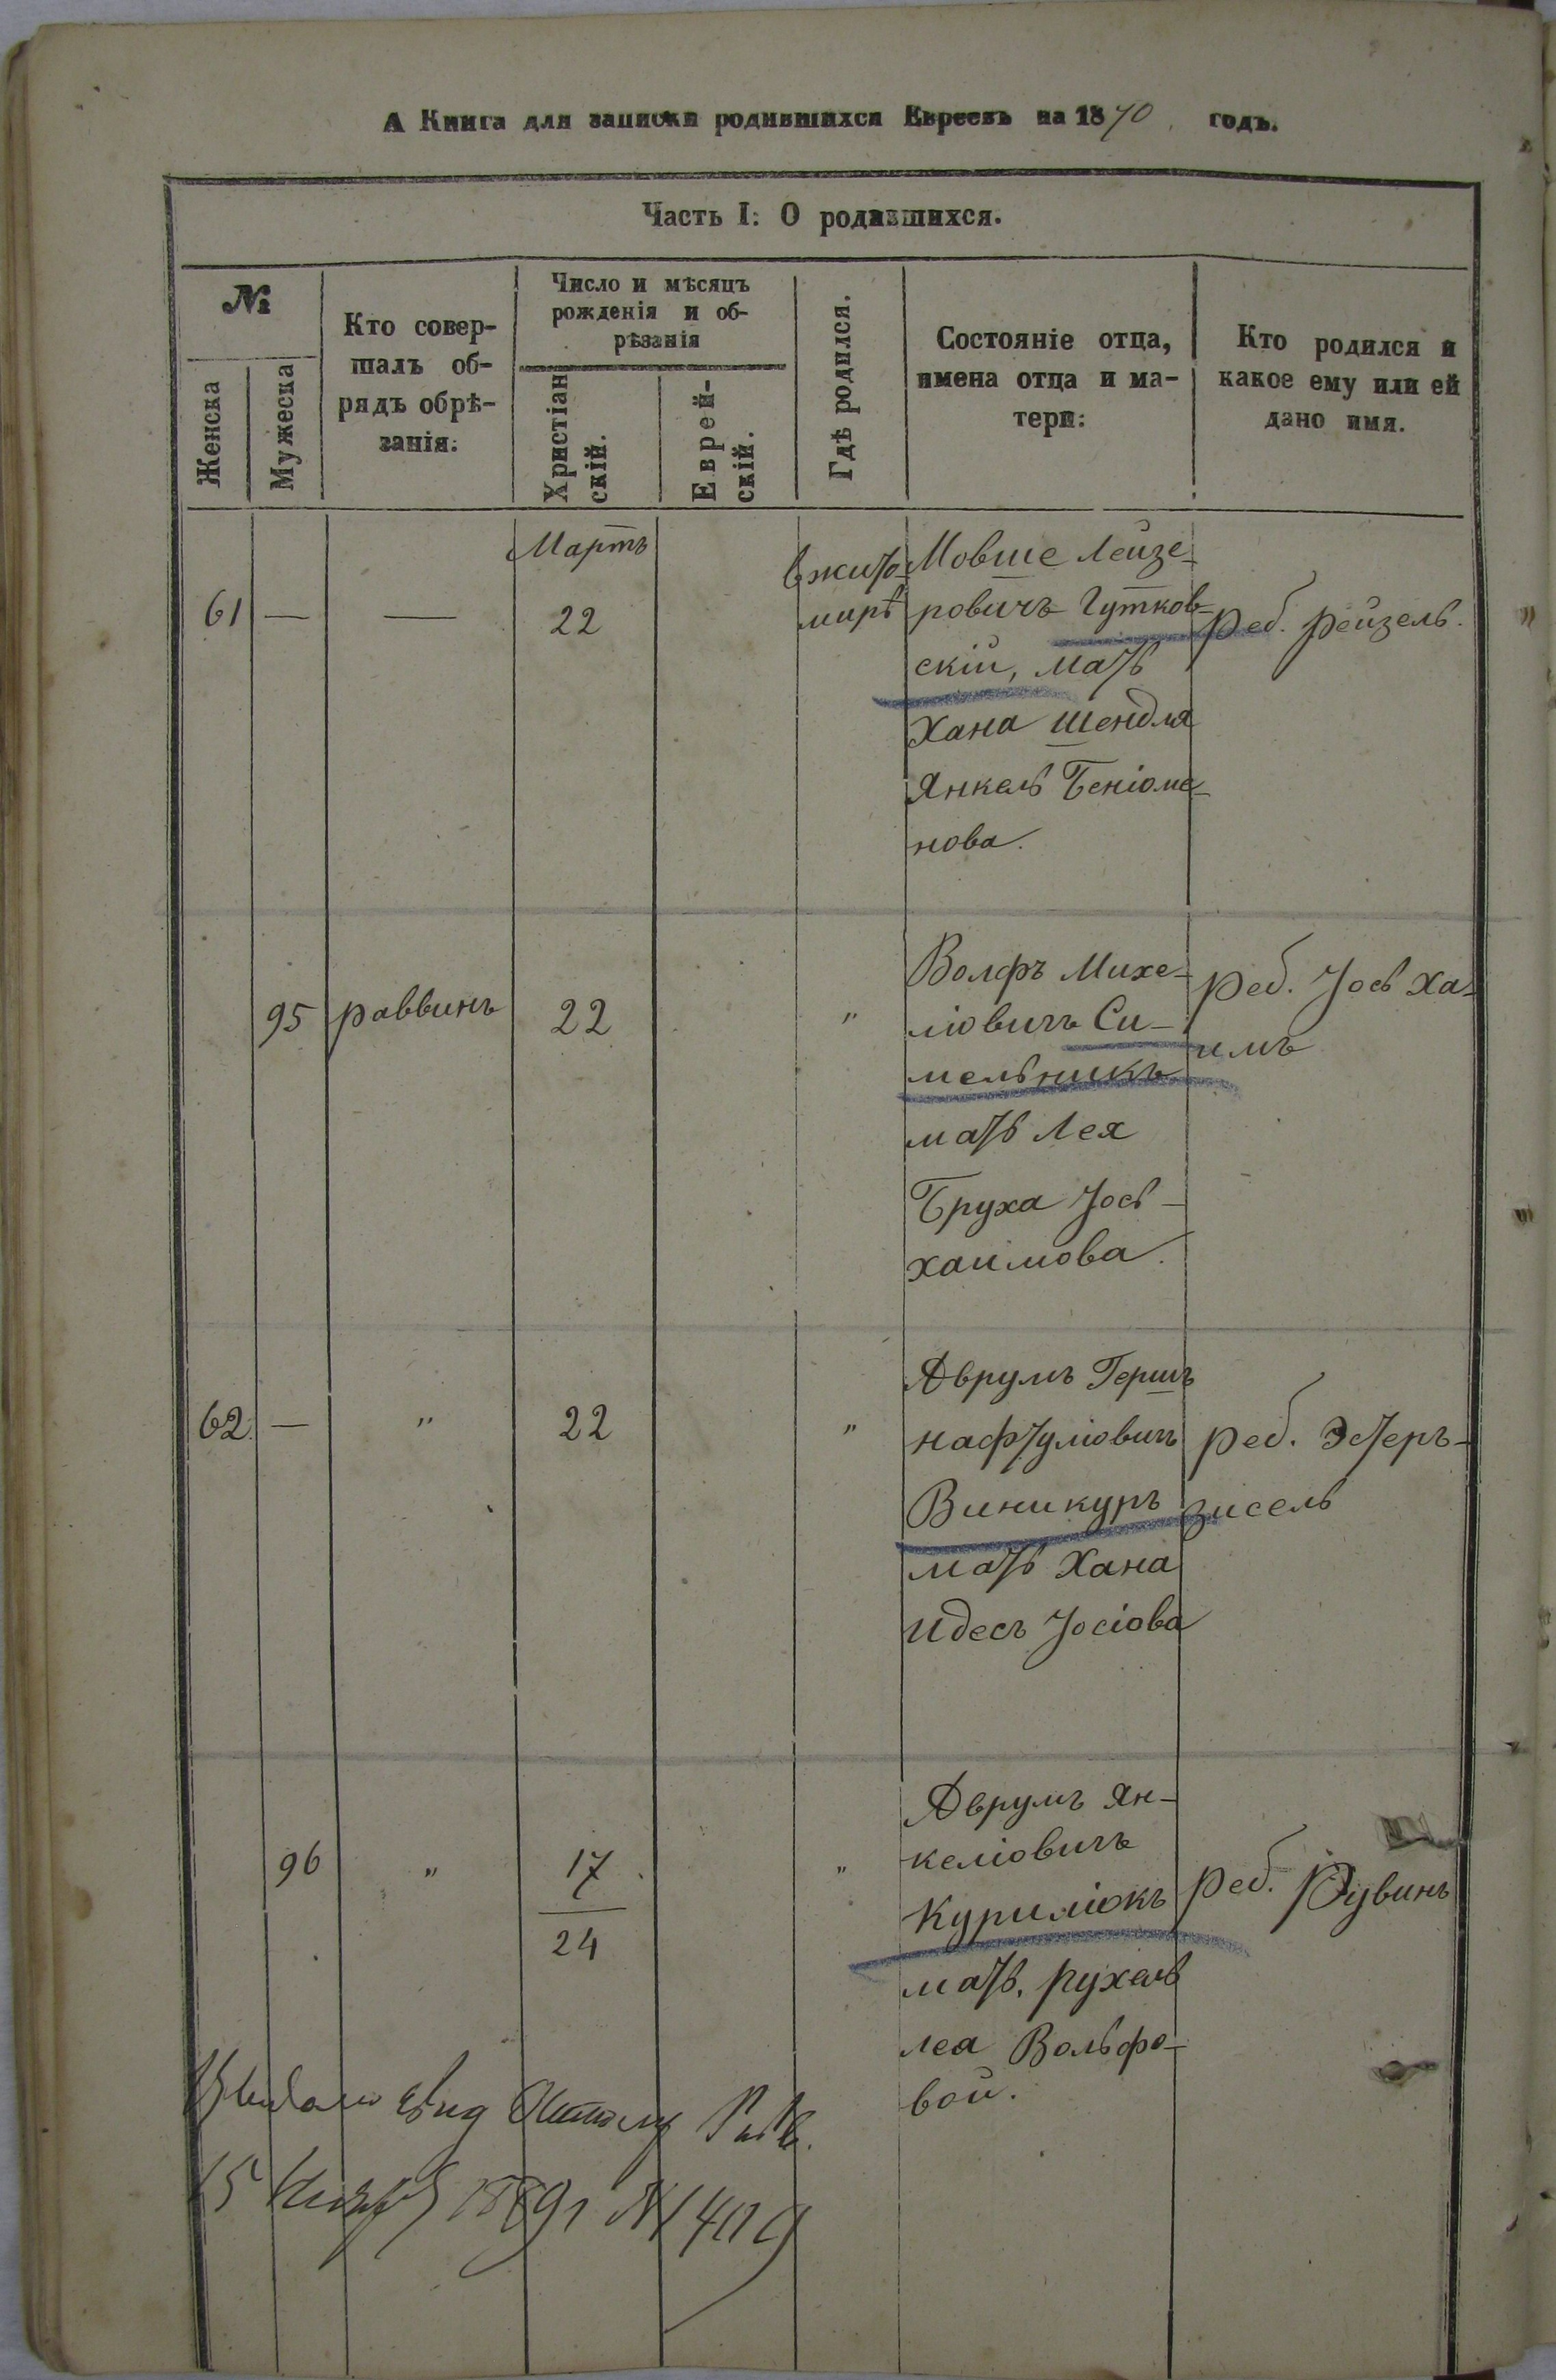 А Книга для записки родившихся Евреевъ на 1870 годъ.
Часть I: О родившихся.
№
Женска
Мужеска
Кто совер-
шалъ об-
рядъ обрѣ-
занія:
Число и мѣсяцъ
рожденія и об-
рѣзанія
Христіан
скій.
Еврей-
скій.
Гдѣ родился.
Состояніе отца,
имена отца и ма-
тери:
Кто родился и
какое ему или ей
дано имя.
Мартъ
61 — — 22
в жито-
мирѣ
Мовше Лейзе-
ровичъ Гутков-
скій, мать
Хана Шендля
Янкель Беніоме-
нова.
реб. рейзель.
95 раввинъ 22 "
Волфъ Михе-
ліовичъ Си-
мельникъ
мать Лея
Бруха Іось-
хаимова.
реб. Іось Ха-
имъ
62 — " 22 "
Аврумъ Гершъ
нафтуліовичъ
Виникуръ
мать Хана
Идесъ Іосіова
реб. Эстеръ-
зисель
96 " 17 "
24
Аврумъ Ян-
келіовичъ
Курилюкъ
мать, рухель
леа Вольфо-
вой.
реб. Рувинъ
15 1889 №